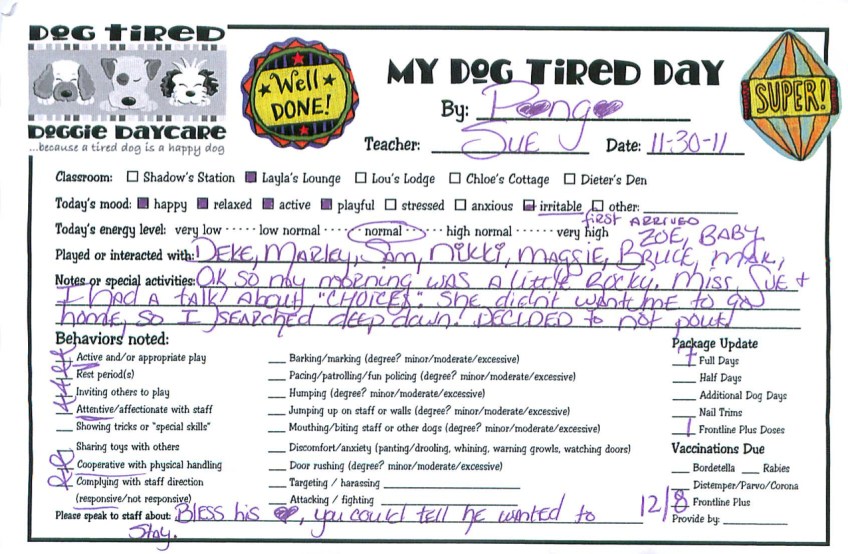 DOG TIRED
DOGGIE DAYCARE
...because a tired dog is a happy dog
Well DONE!
MY DOG TIRED DAY
SUPER!
By: Pongo
Teacher: SUE Date: 11-30-11
Classroom: Shadow's Station Layla's Lounge Lou's Lodge Chloe's Cottage Dieter's Den
Today's mood: happy relaxed active playful stressed anxious irritable other:
first ARRIVED
Today's energy level: very low ····· low normal ···· normal ····· high normal ······ very high ZOE, BABY
Played or interacted with: DEKE, MARLEY, Sam, Nikki, MAGGIE, BRUCE, MAK,
Notes or special activities: OK SO my morning WAS A little Rocky. Miss SUE +
I HAD A tALK! About "CHOICES". SHE didn't want ME to go
home, so I SEARCHED deep down! DECIDED to not pout!
Behaviors noted:
Active and/or appropriate play
Rest period(s)
Inviting others to play
Attentive/affectionate with staff
Showing tricks or "special skills"
Sharing toys with others
Cooperative with physical handling
Complying with staff direction
(responsive/not responsive)
Barking/marking (degree? minor/moderate/excessive)
Pacing/patrolling/fun policing (degree? minor/moderate/excessive)
Humping (degree? minor/moderate/excessive)
Jumping up on staff or walls (degree? minor/moderate/excessive)
Mouthing/biting staff or other dogs (degree? minor/moderate/excessive)
Discomfort/anxiety (panting/drooling, whining, warning growls, watching doors)
Door rushing (degree? minor/moderate/excessive)
Targeting / harassing
Attacking / fighting
Package Update
7 Full Days
Half Days
Additional Dog Days
Nail Trims
1 Frontline Plus Doses
Vaccinations Due
Bordetella Rabies
Distemper/Parvo/Corona
12/8 Frontline Plus
Provide by:
Please speak to staff about: BLESS his ♥, you could tell he wanted to
Stay.